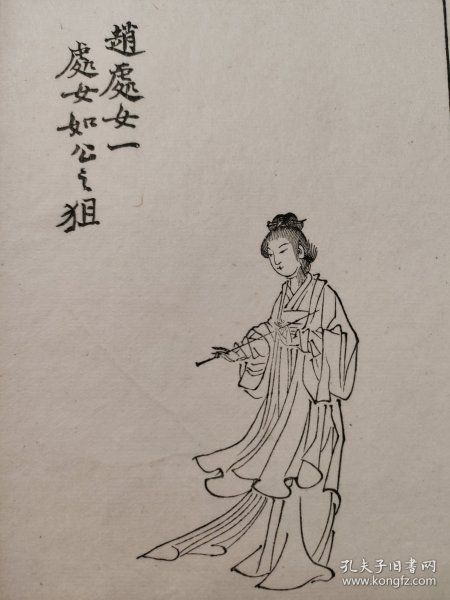 趙處女一
處女如公之狙
孔夫子旧书网
www.kongfz.com